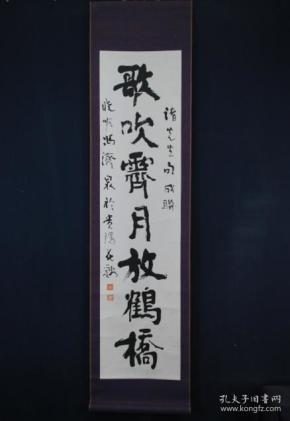 諸先生命成聯
歌吹霽月放鶴橋
馮濟泉於貴陽
孔夫子旧书网
www.kongfz.com